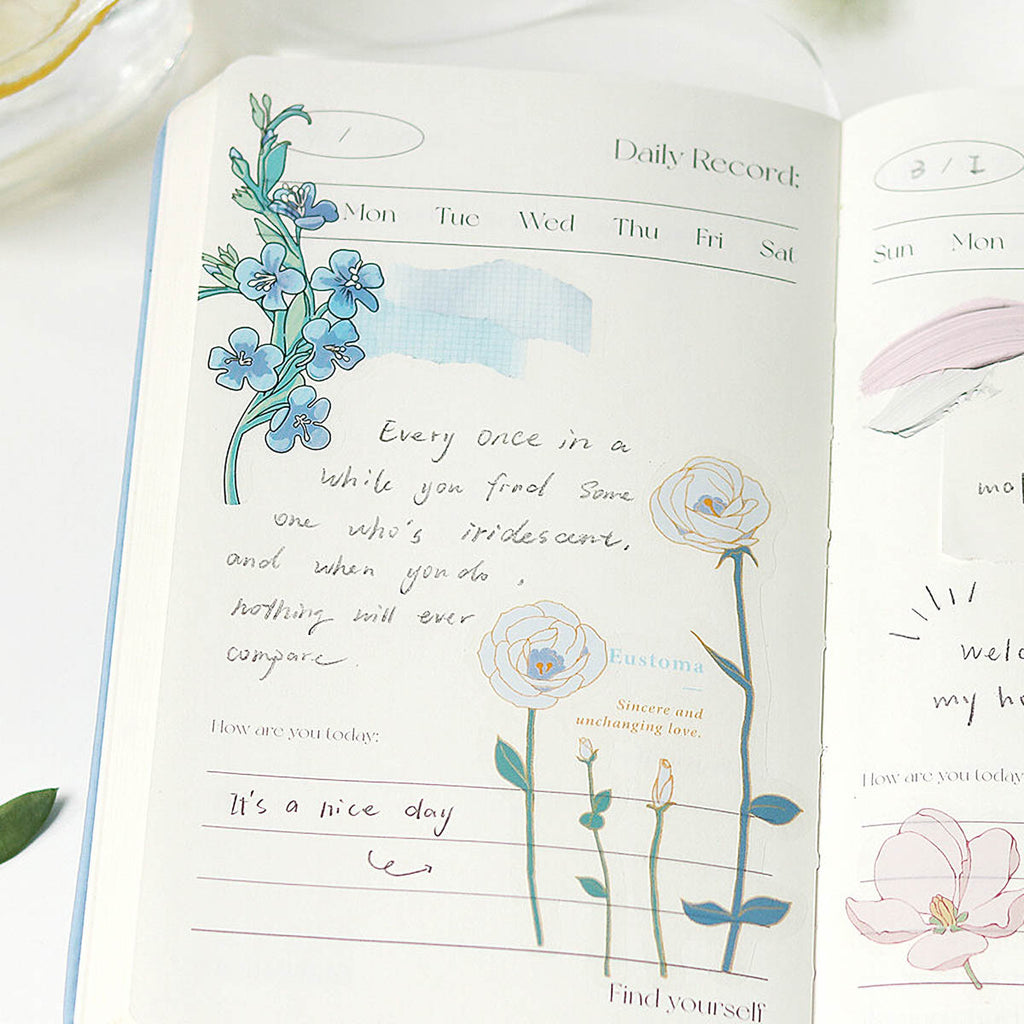 /
Daily Record:
Mon Tue Wed Thu Fri Sat
Every once in a
while you find some
one who's iridescent,
and when you do,
nothing will ever
compare.
Eustoma
Sincere and
unchanging love.
How are you today:
It's a nice day
Find yourself
3 / 1
Sun Mon
welc
my ho
How are you today